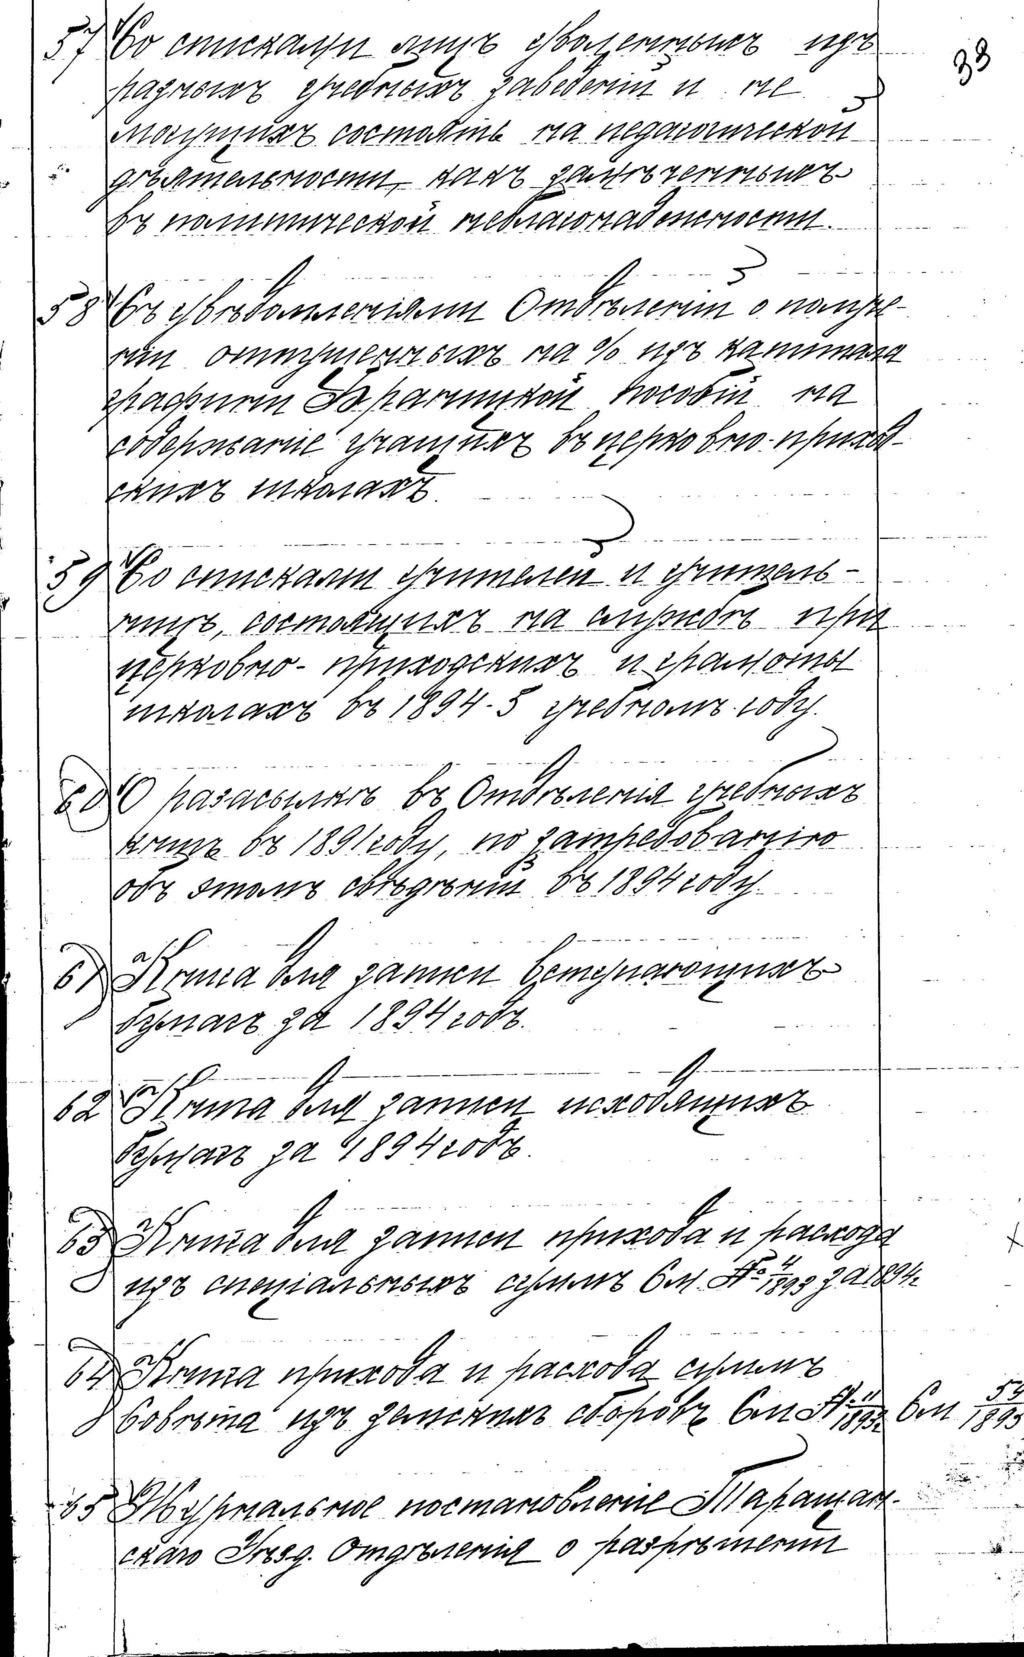 33
57 Со списками лицъ уволенныхъ изъ
разныхъ учебныхъ заведеній и не
могущихъ состоять на педагогической
дѣятельности, какъ замѣченныхъ
въ политической неблагонадежности.
58 Съ увѣдомленіями Отдѣленій о получе-
ніи отпущенныхъ на % изъ капитала
графини Браницкой пособій на
содержаніе учащихъ въ церковно-приход-
скихъ школахъ.
59 Со списками учителей и учитель-
ницъ, состоящихъ на службѣ при
церковно-приходскихъ и грамоты
школахъ въ 1894-5 учебномъ году.
60 О разасылкѣ въ Отдѣленія учебныхъ
книгъ въ 1891 году, по затребованію
объ этомъ свѣдѣній въ 1894 году.
61 Книга для записи вступающихъ
бумагъ за 1894 годъ.
62 Книга для записи исходящихъ
бумагъ за 1894 годъ.
63 Книга для записи прихода и расхода
изъ спеціальныхъ суммъ см. № 4/1893 за 1894 г.
64 Книга прихода и расхода суммъ
Совѣта изъ земскихъ сборовъ см № 11/1893 г. См 54/1893
65 Журнальное постановленіе Таращан-
скаго Уѣзд. Отдѣленія о разрѣшеніи